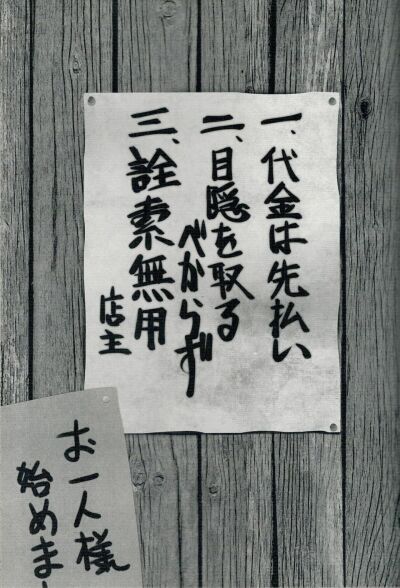 一、代金は先払い
二、目隠を取る
べからず
三、詮索無用
店主
お一人様
始めま